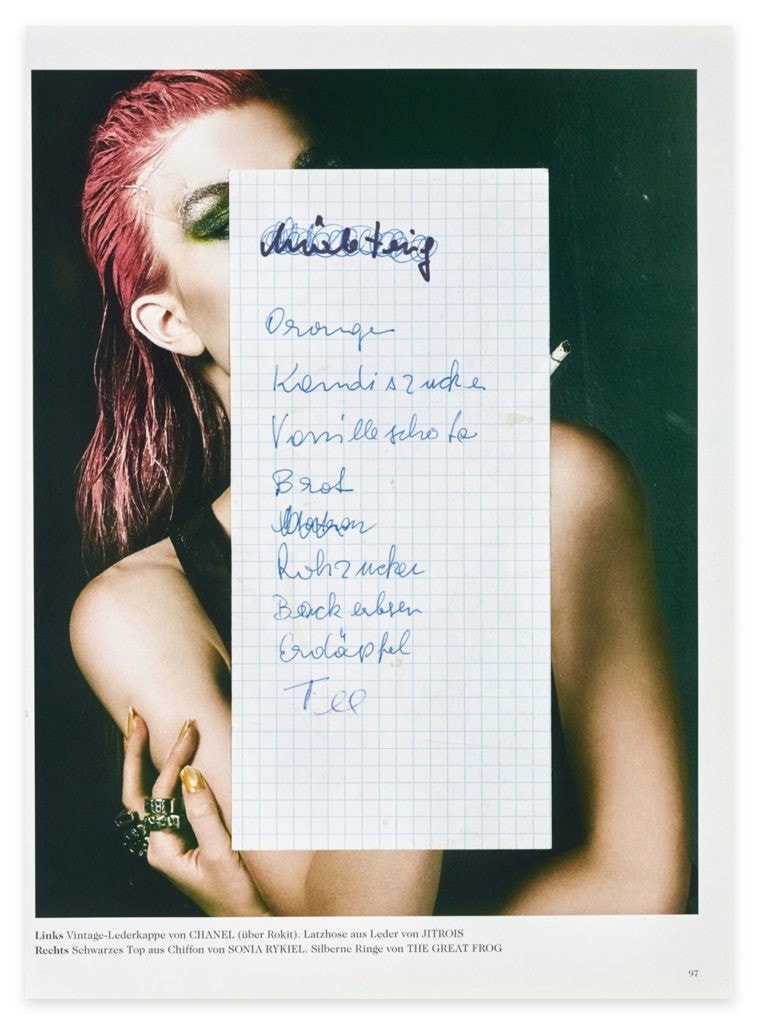 Orange
Kandiszucker
Vanilleschote
Brot
Rohzucker
Backerbsen
Erdäpfel
Tee
Links Vintage-Lederkappe von CHANEL (über Rokit). Latzhose aus Leder von JITROIS
Rechts Schwarzes Top aus Chiffon von SONIA RYKIEL. Silberne Ringe von THE GREAT FROG
97